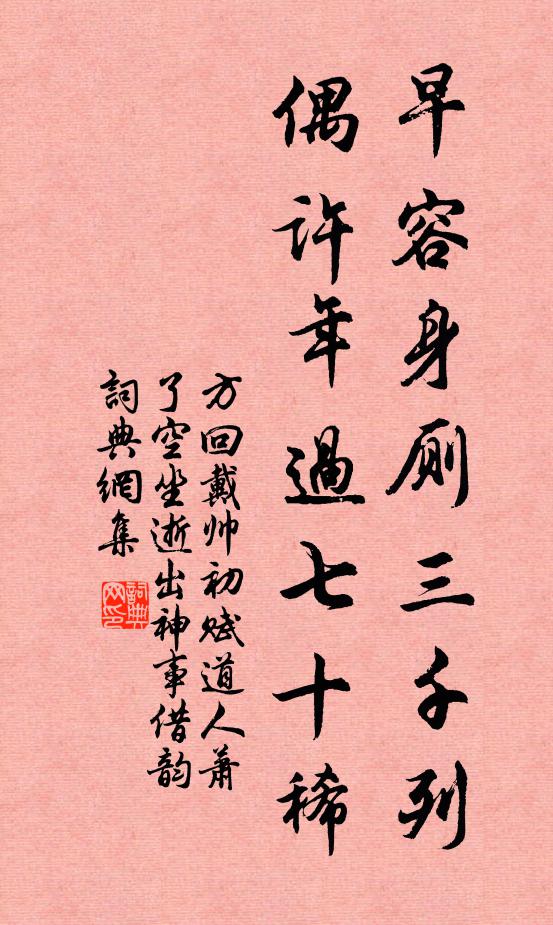 早容身厠三千列
偶許年過七十稀
方回戴帅初赋道人萧
了空坐逝出神事借韵
詞典網集
詞典网印